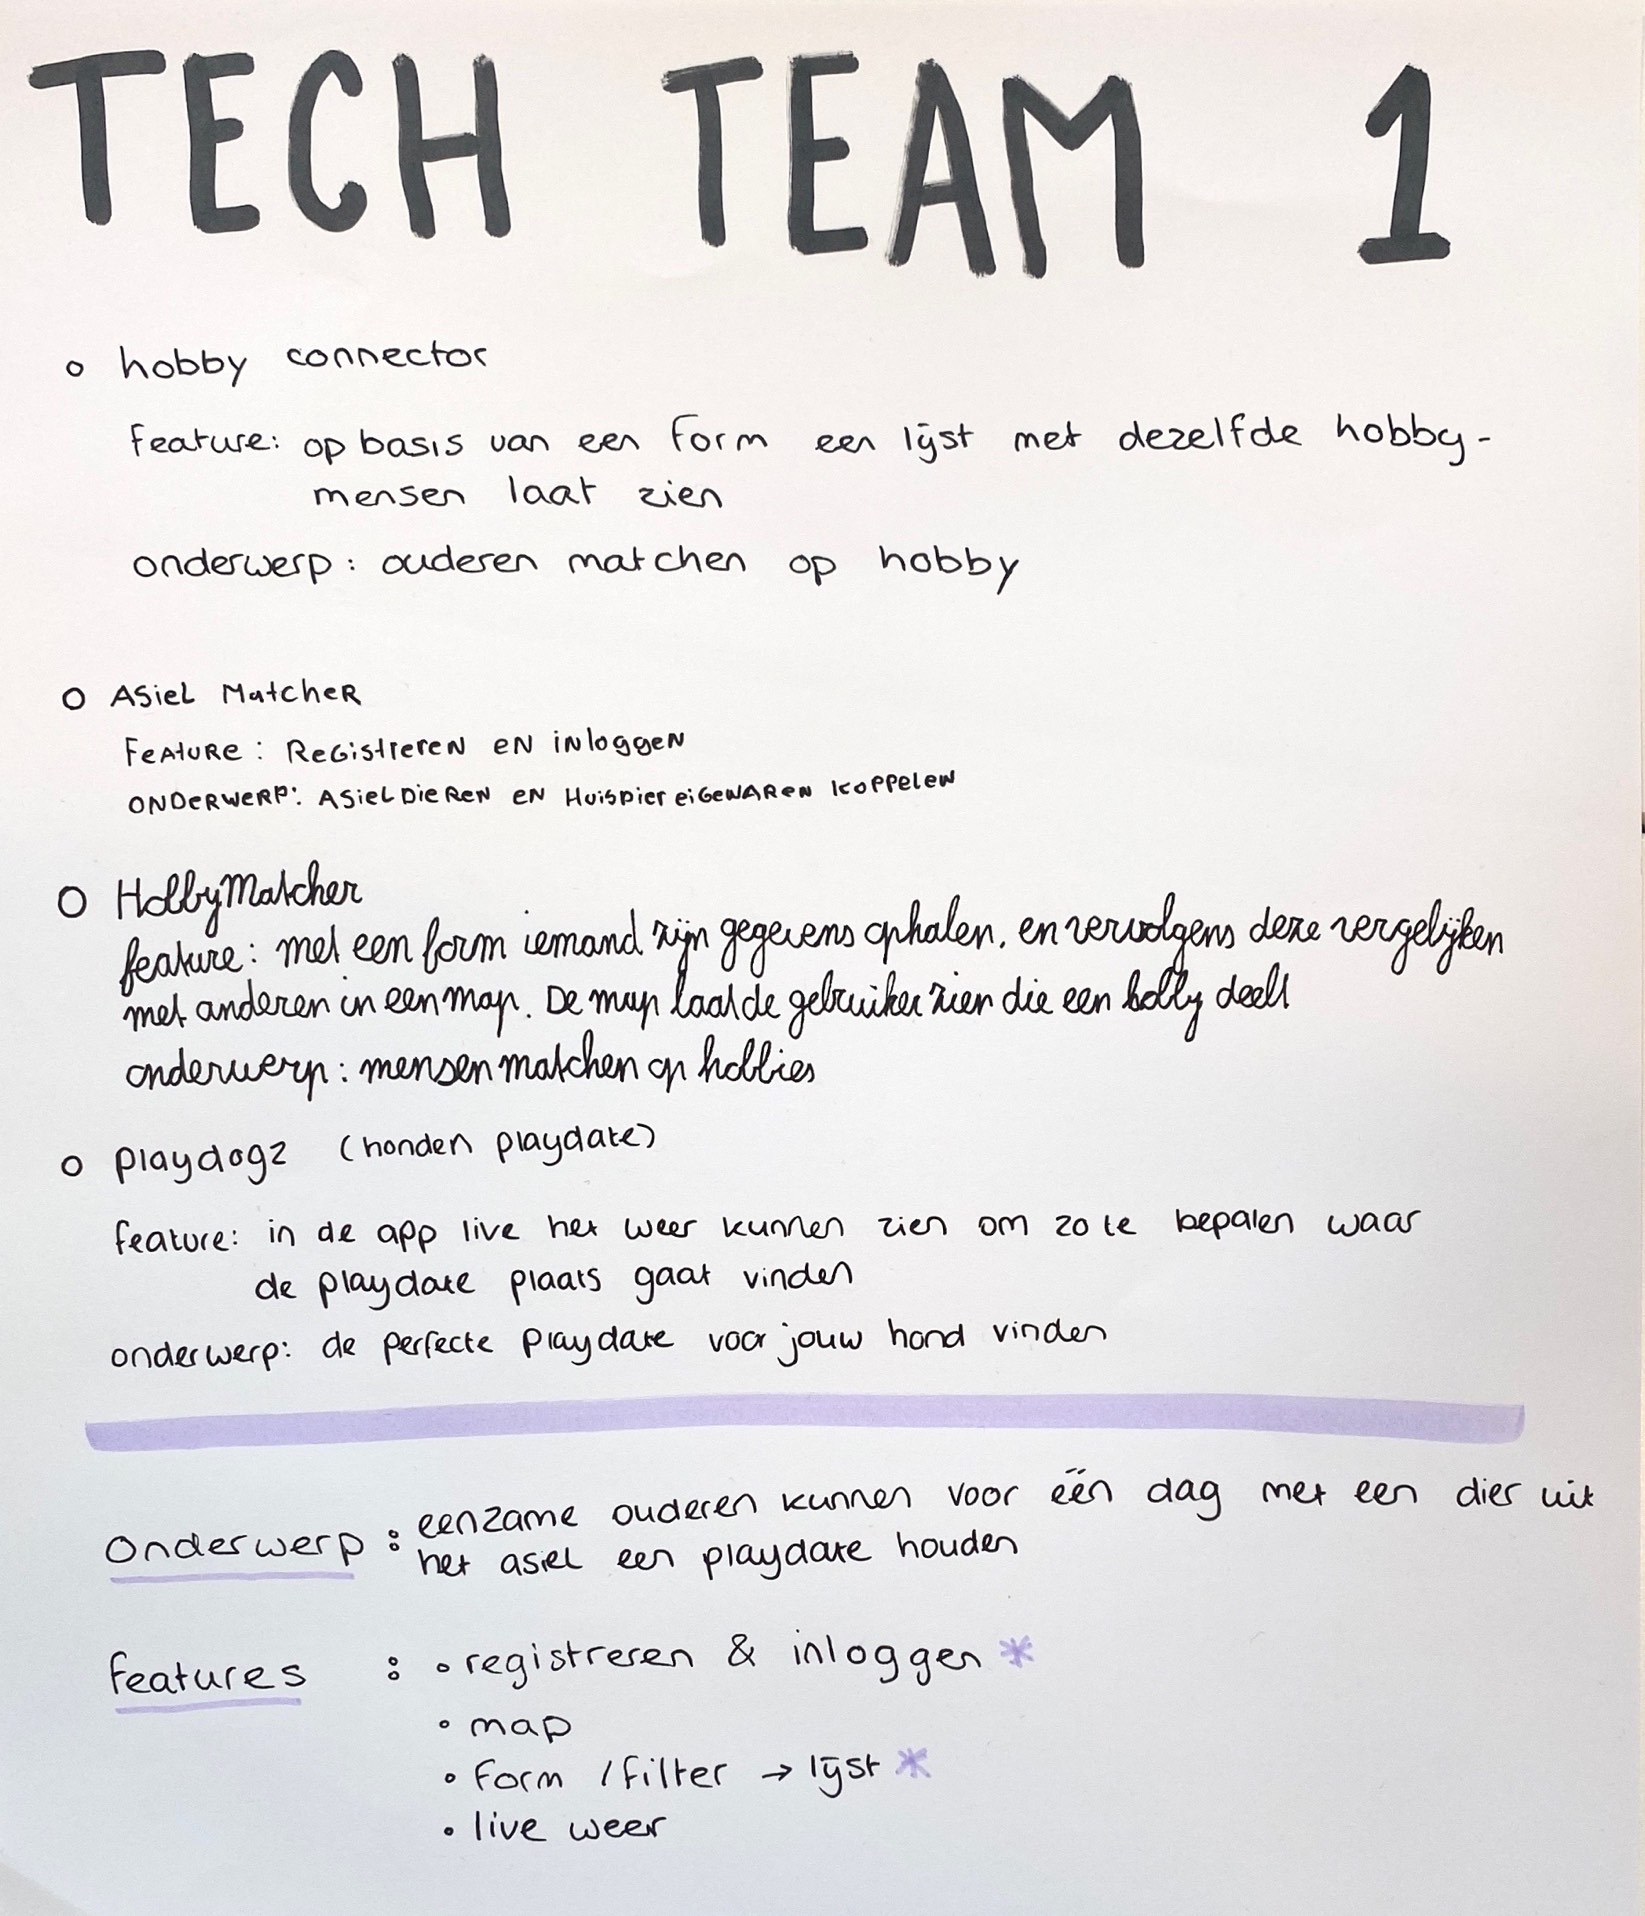 TECH TEAM 1
o hobby connector
feature: op basis van een form een lijst met dezelfde hobby-
mensen laat zien
onderwerp: ouderen matchen op hobby
o Asiel Matcher
Feature: Registreren en inloggen
Onderwerp: Asieldieren en Huisdier eigenaren koppelen
o HobbyMatcher
feature: met een form iemand zijn gegevens ophalen, en vervolgens deze vergelijken
met anderen in een map. De map laat de gebruiker zien die een hobby deelt
onderwerp: mensen matchen op hobbies
o playdogz (honden playdate)
feature: in de app live het weer kunnen zien om zo te bepalen waar
de playdate plaats gaat vinden
onderwerp: de perfecte playdate voor jouw hond vinden
Onderwerp : eenzame ouderen kunnen voor één dag met een dier uit
het asiel een playdate houden
features : • registreren & inloggen *
• map
• form / filter → lijst *
• live weer